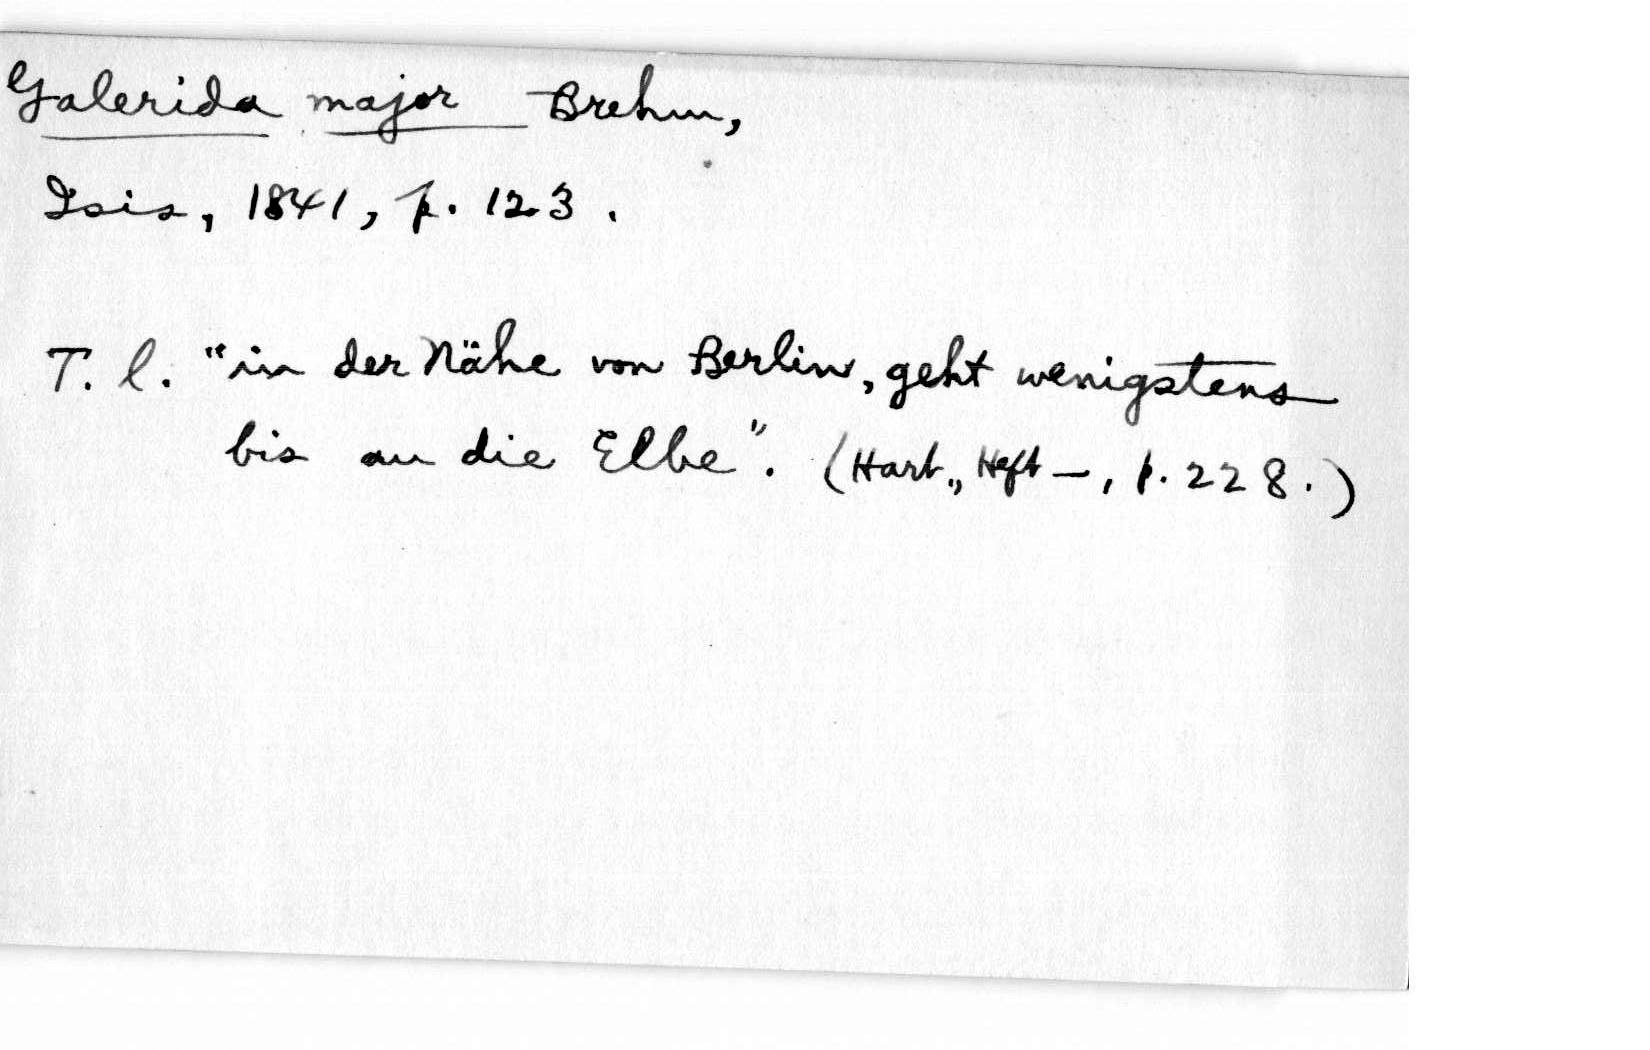 Galerida major Brehm,
Isis, 1841, p. 123.
T. l. "in der Nähe von Berlin, geht wenigstens
bis an die Elbe". (Hart., Heft —, p. 228.)